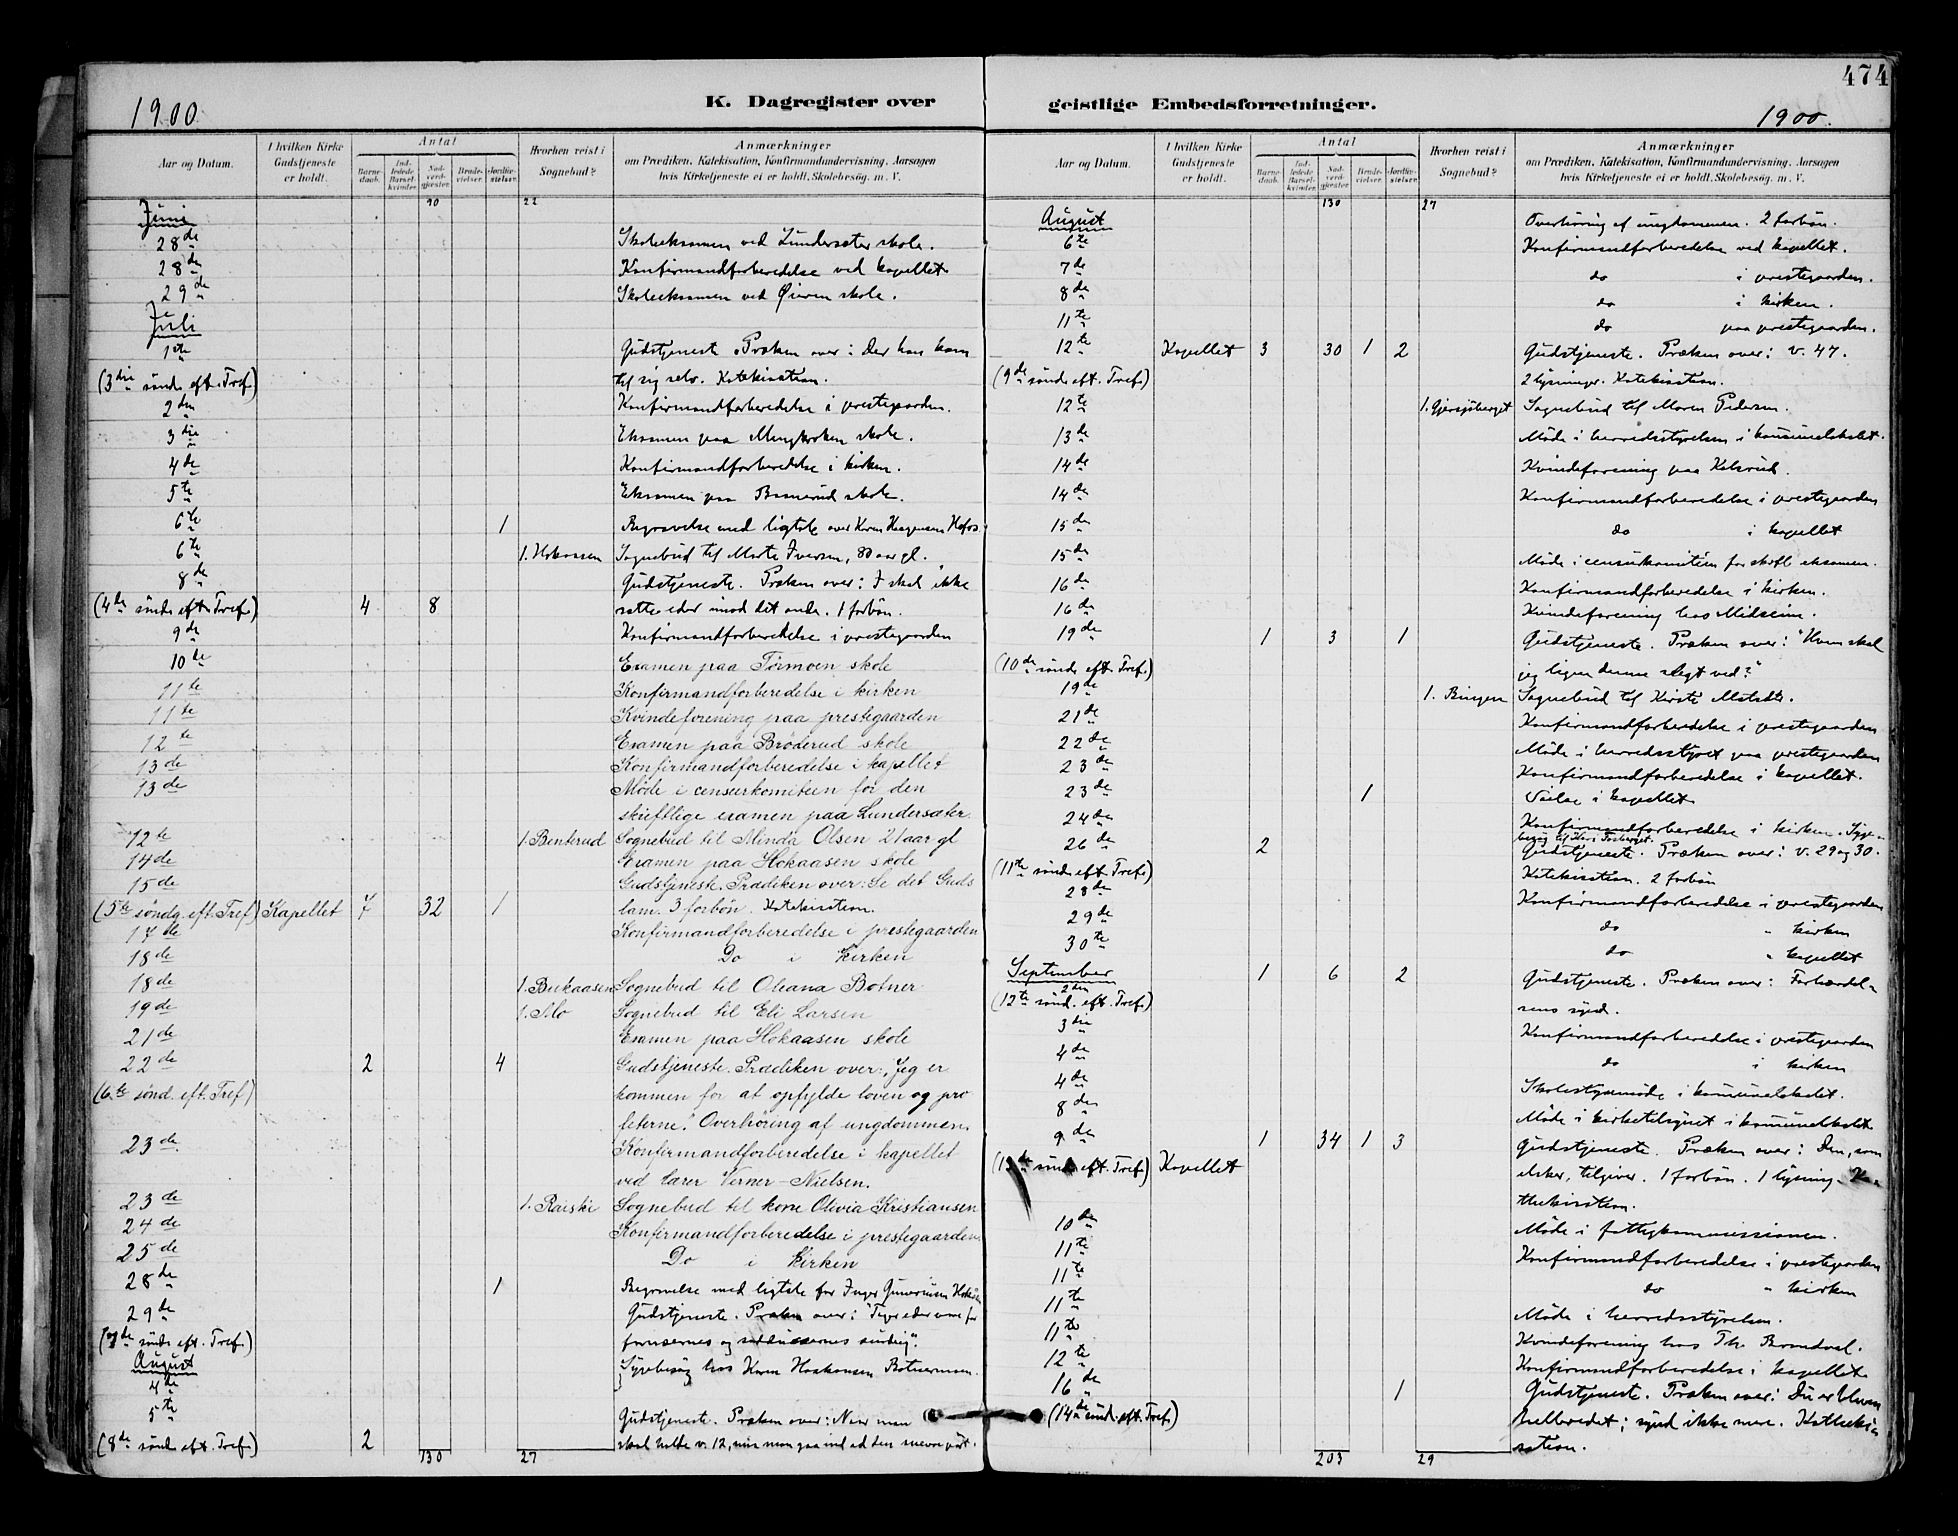 474
1900.
K. Dagregister over
Aar og Datum.
I hvilken Kirke Gudstjeneste er holdt.
Antal
Barne-daab.
Ind-ledede Barsel-kvinder.
Nad-verd-gjæster.
Brude-vielser.
Jordfæ-stelser.
Hvorhen reist i Sognebud?
Anmærkninger
om Prædiken, Katekisation, Konfirmandundervisning, Aarsagen
hvis Kirketjeneste ei er holdt, Skolebesøg, m. V.
90 22
Juni
28de Skoleeksamen ved Lundersæter skole.
28de Konfirmandforberedelse ved kapellet
29de Skoleeksamen ved Øieren skole.
Juli
1ste Gudstjeneste. Præken over: Der han kom
(3die sönd. eft. Tref.) til sig selv. Katekisation.
2den Konfirmandforberedelse i prestegaarden.
3die Eksamen paa skole.
4de Konfirmandforberedelse i kirken.
5te Eksamen paa skole.
6te 1 Begravelse med ligtale over Karen Hofos
6te 1. Hokaasen Sognebud til Marte Iversen, 80 aar gl.
8de Gudstjeneste. Præken over: I skal ikke
(4de sönd. eft. Tref.) 4 8 sætte eder imod det onde. 1 forbön.
9de Konfirmandforberedelse i prestegaarden
10de Examen paa Törmoen skole
11te Konfirmandforberedelse i kirken
11te Kvindeforening paa prestegaarden
12te Examen paa Bröderud skole
13de Konfirmandforberedelse i kapellet
13de Möde i censurkomiteen for den
skriftlige examen paa Lundersæter.
12te 1. Benterud Sognebud til Minda Olsen 21 aar gl
14de Examen paa Hokaasen skole
15de Gudstjeneste. Prædiken over: Se det Guds
(5te söndg. eft. Tref) Kapellet 7 32 1 lam. 3 forbön. Katekisation.
17de Konfirmandforberedelse i prestegaarden
18de Do i Kirken
18de 1. Bukaasen Sognebud til Oleana Botner
19de 1. Mo Sognebud til Eli Larsen
21de Examen paa Hokaasen skole
22de 2 4 Gudstjeneste. Prædiken over: „Jeg er
(6te sönd. eft. Tref) kommen for at opfylde loven og pro
feterne." Overhöring af ungdommen.
23de. Konfirmandforberedelse i kapellet
ved lærer Verner-Nielsen.
23de 1. Raiski Sognebud til kone Olivia Kristiansen
24de Konfirmandforberedelse i prestegaarden
25de Do i Kirken
28de 1 Begravelse med ligtale for Inger
29de Gudstjeneste. Præken over: Tager eder vare for
(7de sönd. eft. Tref.) farisæernes og sadducæernes surdeig".
August
4de Sygebesög hos Karen Haakonsen
5te Gudstjeneste. Præken over: Naar man
(8de sönd. eft. Tref.) 2 skal holde v. 12, maa man gaa ind ad den snevre port.
130 27
geistlige Embedsforretninger.
1900.
Aar og Datum.
I hvilken Kirke Gudstjeneste er holdt.
Antal
Barne-daab.
Ind-ledede Barsel-kvinder.
Nad-verd-gjæster.
Brude-vielser.
Jordfæ-stelser.
Hvorhen reist i Sognebud?
Anmærkninger
om Prædiken, Katekisation, Konfirmandundervisning, Aarsagen
hvis Kirketjeneste ei er holdt, Skolebesøg, m. V.
130 27
August Overhöring af ungdommen. 2 forbön.
6te Konfirmandforberedelse ved kapellet.
7de do i prestegaarden.
8de do i kirken.
11te do paa prestegaarden.
12te Kapellet 3 30 1 2 Gudstjeneste. Præken over: v. 47.
(9de sönd. eft. Tref.) 2 lysninger. Katekisation.
12te 1. Gjersjöberget Sognebud til Maren Pedersen.
13de Möde i herredsstyrelsen i kommunelokalet.
14de Kvindeforening paa Kolsrud.
14de Konfirmandforberedelse i prestegaarden
15de do i kapellet
15de Möde i censurkomitéen for skrftl eksamen.
16de Konfirmandforberedelse i kirken.
16de Kvindeforening hos
19de 1 3 1 Gudstjeneste. Præken over: "Hvem skal
(10de sönd. eft. Tref.) jeg ligne denne slegt ved?"
19de 1. Bingen Sognebud til Kirsti
21de Konfirmandforberedelse i prestegaarden
22de Möde i herredsstyret paa prestegaarden
23de Konfirmandforberedelse i kapellet.
23de 1 Vielse i kapellet
24de Konfirmandforberedelse i kirken. Syge-
besög til
26de 2 Gudstjeneste. Præken over: v. 29 og 30.
(11te sönd. eft. Tref.) Katekisation. 2 forbön
28de Konfirmandforberedelse i prestegaarden
29de do " kirken
30te do " kapellet
September
2den 1 6 2 Gudstjeneste. Præken over: Forhærdel-
(12te sönd. eft. Tref.) sens synd.
3die Konfirmandforberedelse i prestegaarden
4de do i kirken
4de Skolestyremöde i kommunelokalet.
8de Möde i kirketilsynet i kommunelokalet
9de 1 34 1 3 Gudstjeneste. Præken over: Den, som
(13de sönd. eft. Tref.) Kapellet elsker, tilgiver. 1 forbön. 1 lysning. Ka-
thekisation.
10de Möde i fattigkommissionen.
11te Konfirmandforberedelse i prestegaarden
11te do " kirken
11te Möde i herredsstyrelsen.
11te Kvindeforening hos Th. Brandval.
12te Konfirmandforberedelse i kapellet
16de 1 Gudstjeneste. Præken over: Du er bleven
(14de sönd. eft. Tref.) helbredet; synd ikke mere. Katheki-
sation.
203 29